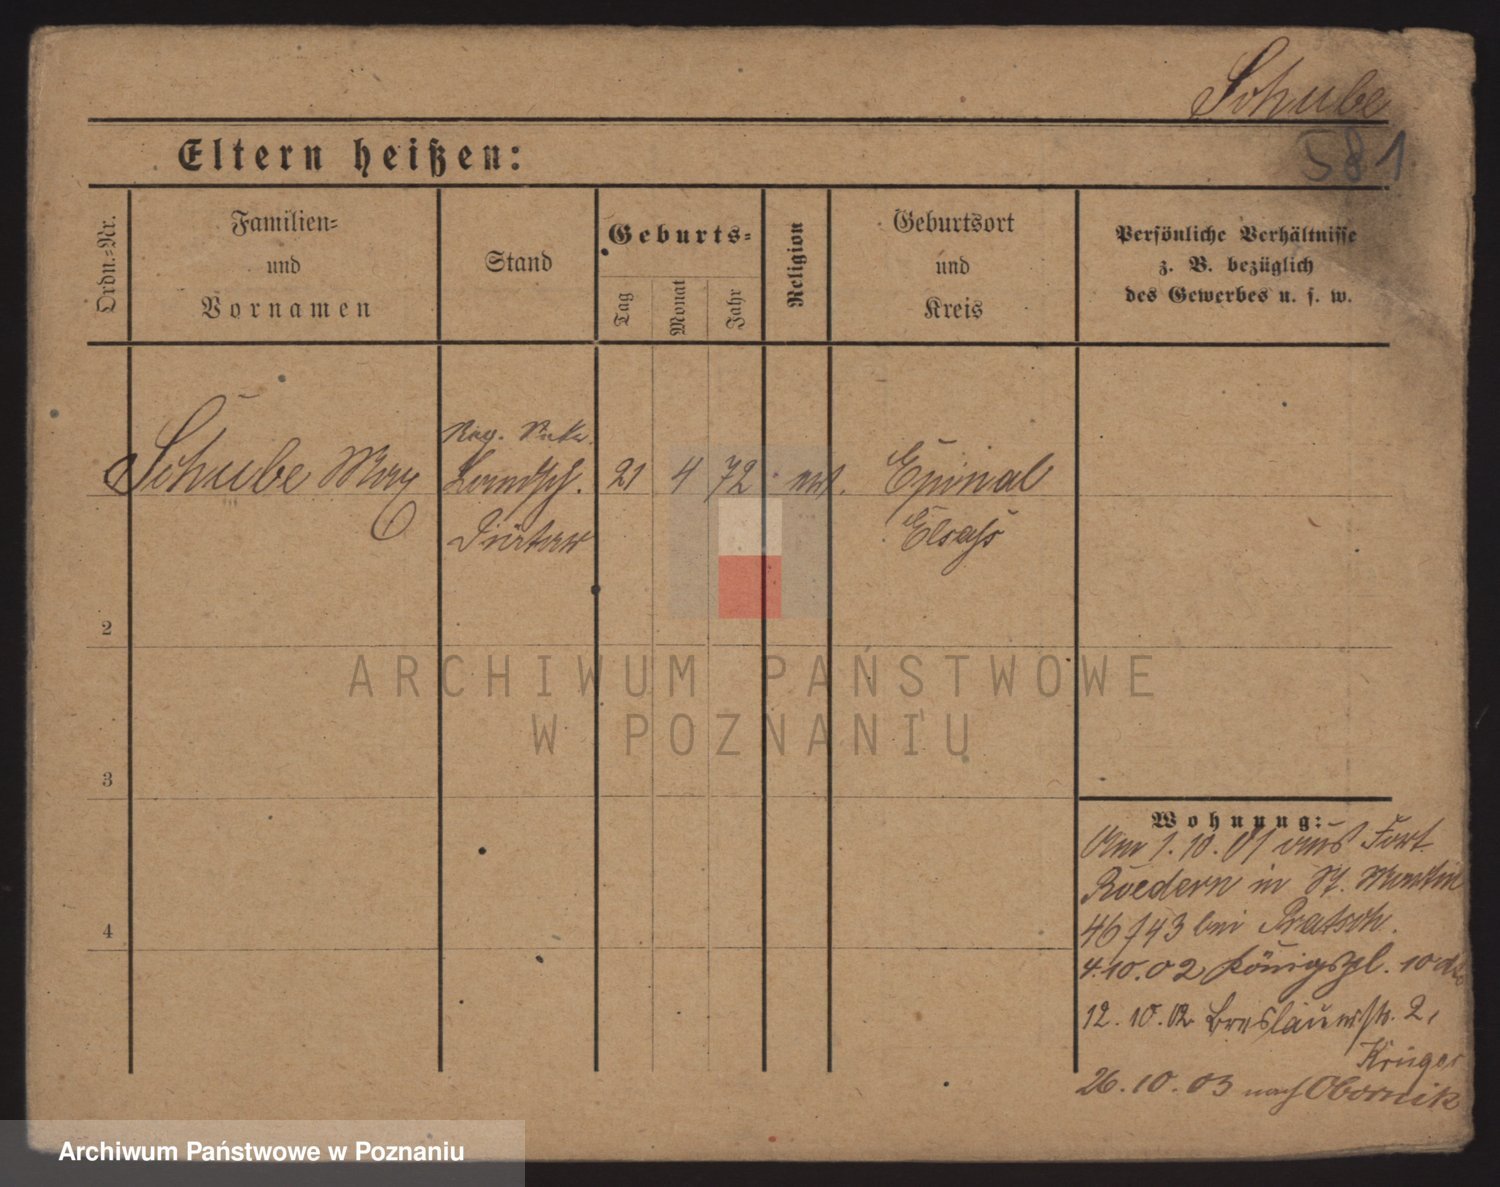 Schube
581.
Eltern heißen:
Ordn.-Nr.
Familien-
und
Vornamen
Stand
Geburts-
Tag
Monat
Jahr
Religion
Geburtsort
und
Kreis
Persönliche Verhältnisse
z. B. bezüglich
des Gewerbes u. s. w.
Schube Max
Landsch.
21 4 72
Epinal
Elsaß
2
3
4
ARCHIWUM PAŃSTWOWE
W POZNANIU
Wohnung:
Am 1.10.01 aus Fort
Roedern in St. Martin
46/43 bei Pratsch.
4.10.02 Königspl. 10
12.10.02 Breslauerstr. 2,
Krüger
26.10.03 nach Obornik
Archiwum Państwowe w Poznaniu